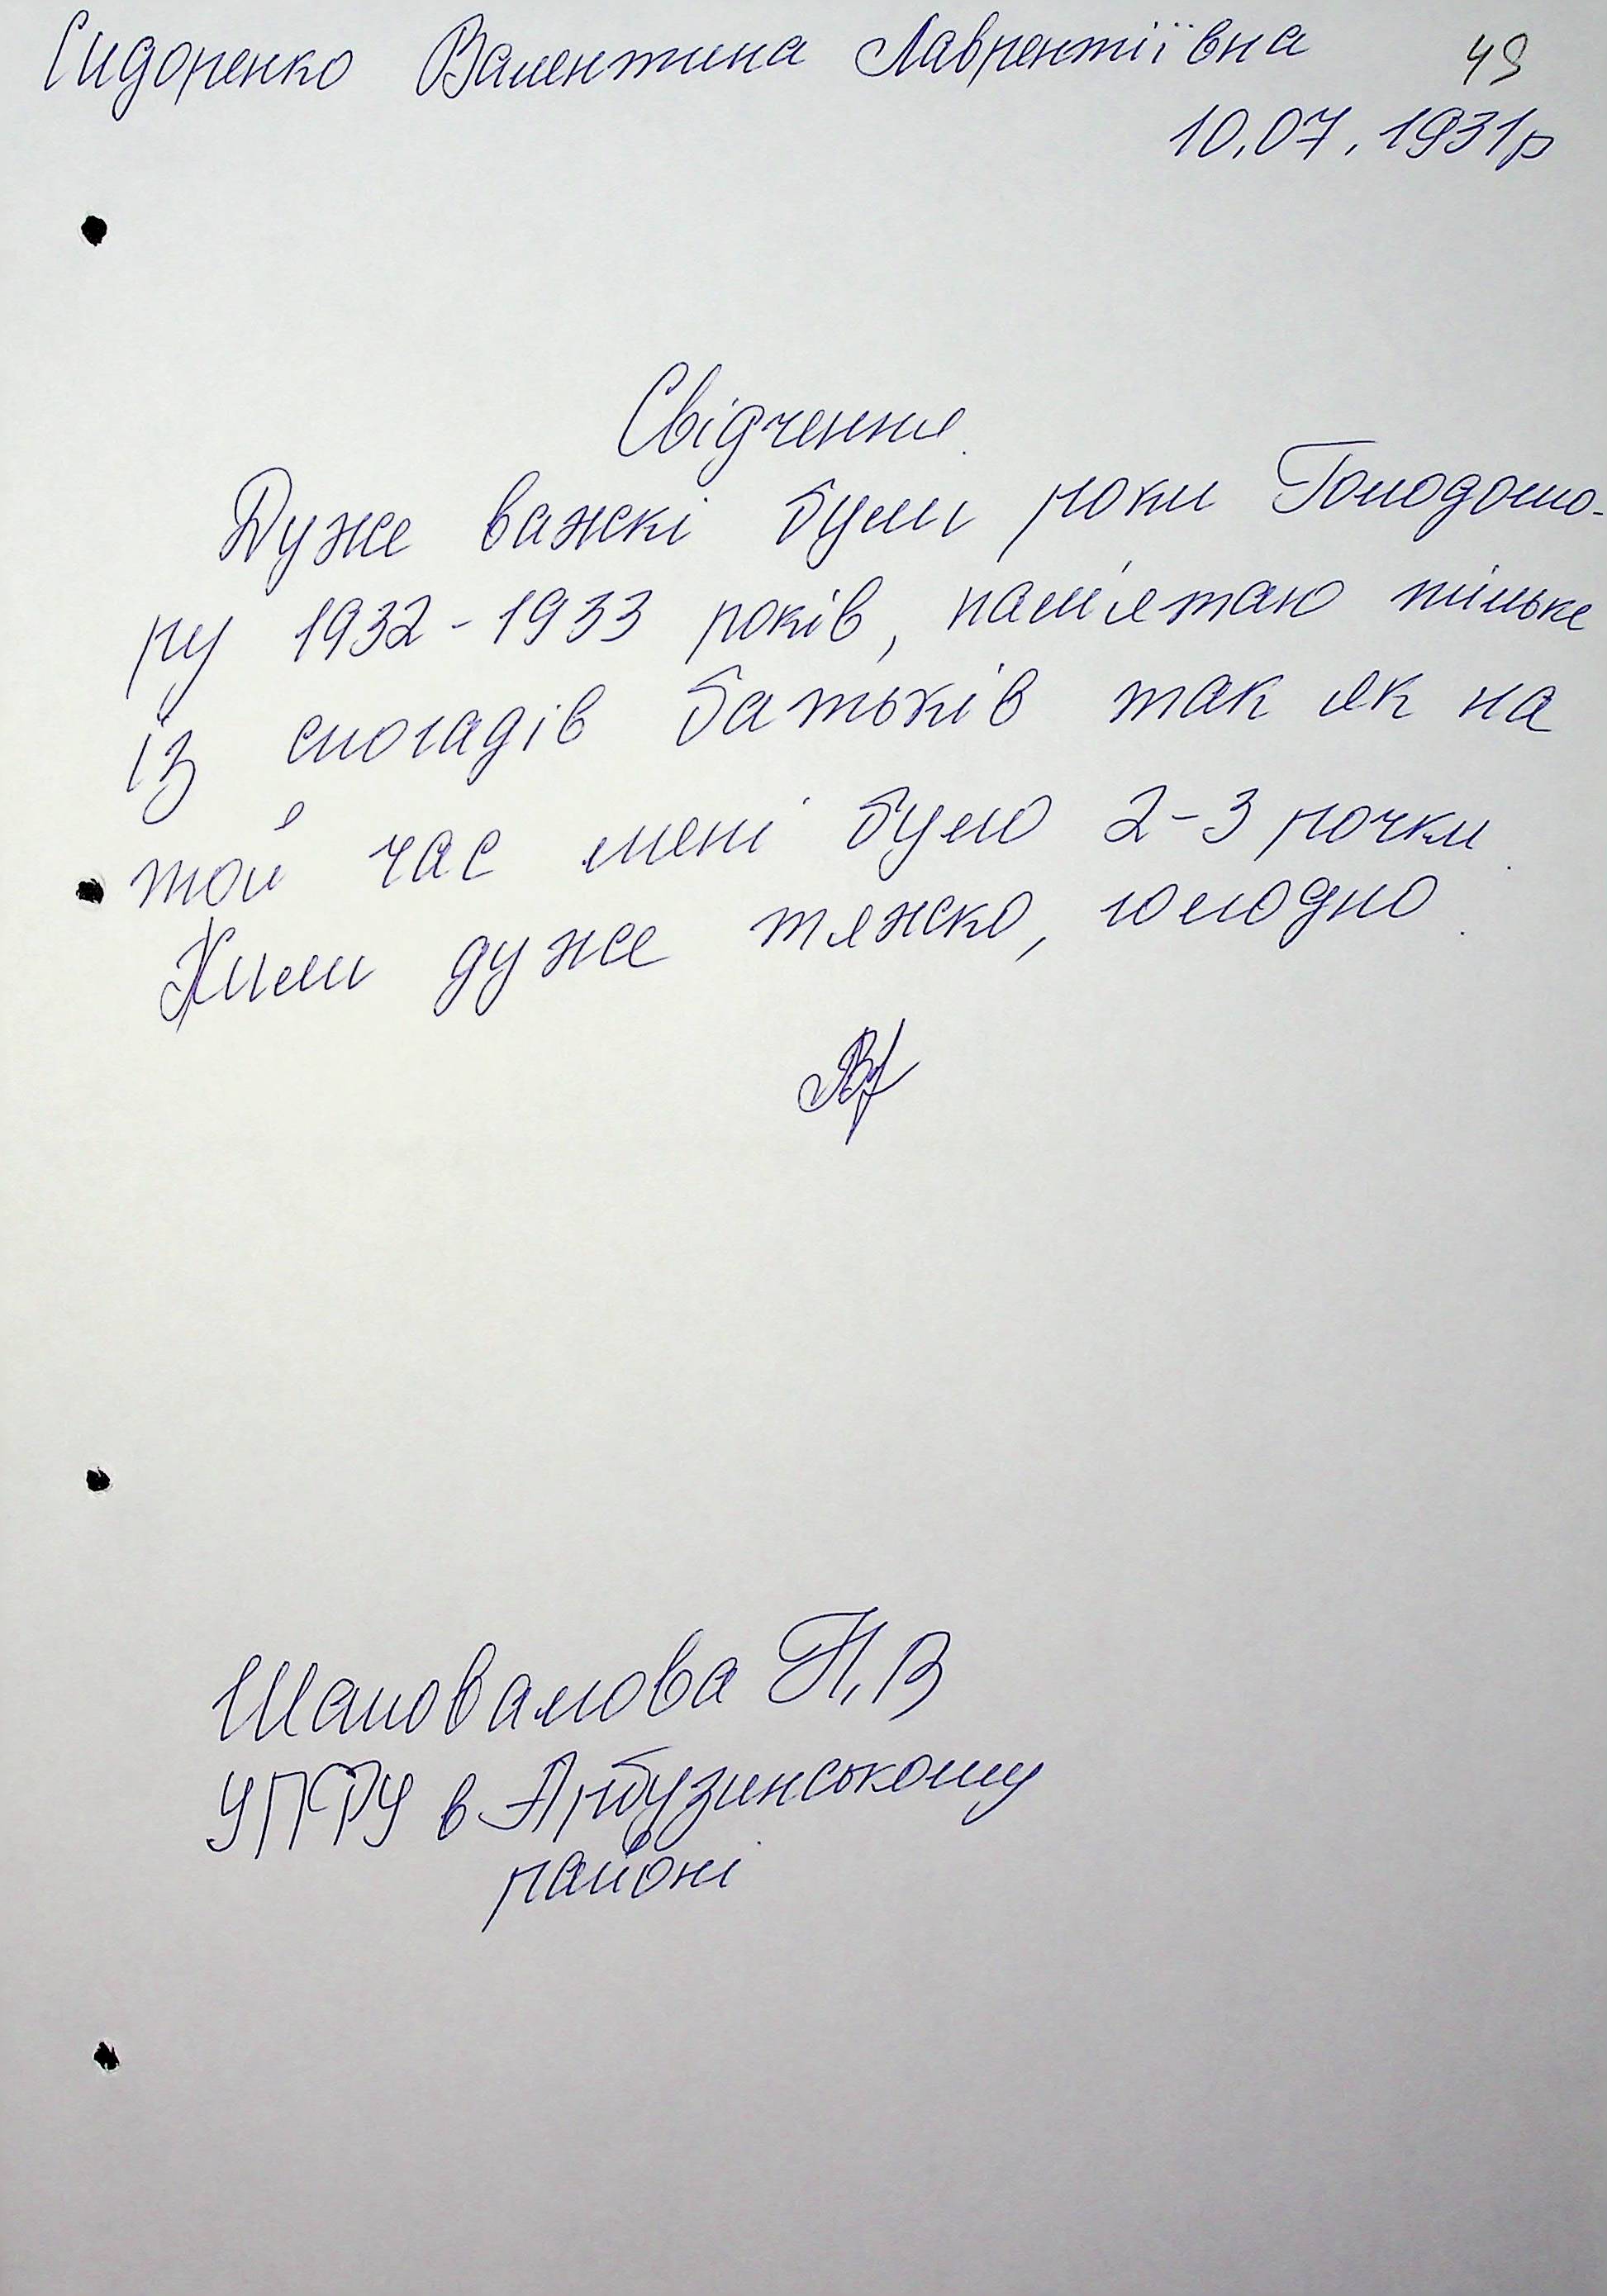 Сидоренко Валентина Лаврентіївна 49
10.07.1931р
Свідчення.
Дуже важкі були роки Голодомо-
ру 1932-1933 років, пам'ятаю тільке
із спогадів батьків так як на
той час мені було 2-3 рочки.
Жили дуже тяжко, голодно.
Шаповалова Н.В
УПФУ в Арбузинському
районі